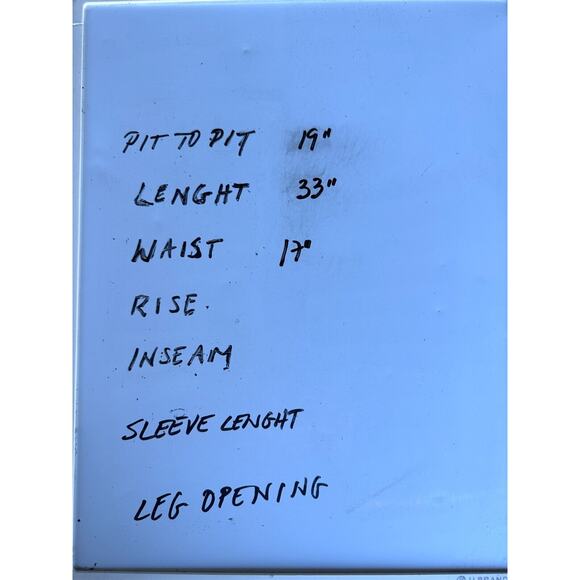 PIT TO PIT 19"
LENGHT 33"
WAIST 17"
RISE.
INSEAM
SLEEVE LENGHT
LEG OPENING